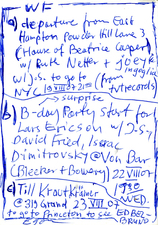 WF
a) departure from East
Hampton Powder Hill Lane 3
(House of Beatrice Casper)
w/ Ruth Netter + joey k
w/J.S. to go to (from
NYC 19 VIII 07 21h tvrecords
surprise
b) B-day Party Start for
Lars Ericson w/ J.S.,
David Fried, Isaac
Dimitrovsky @ Von Bar
(Bleeker + Bowery) 22 VIII 07
c) Till Krautkrämer 19h30
@ 319 Grand 23 VIII 07 WED.
to go to Princeton to see EDBE-